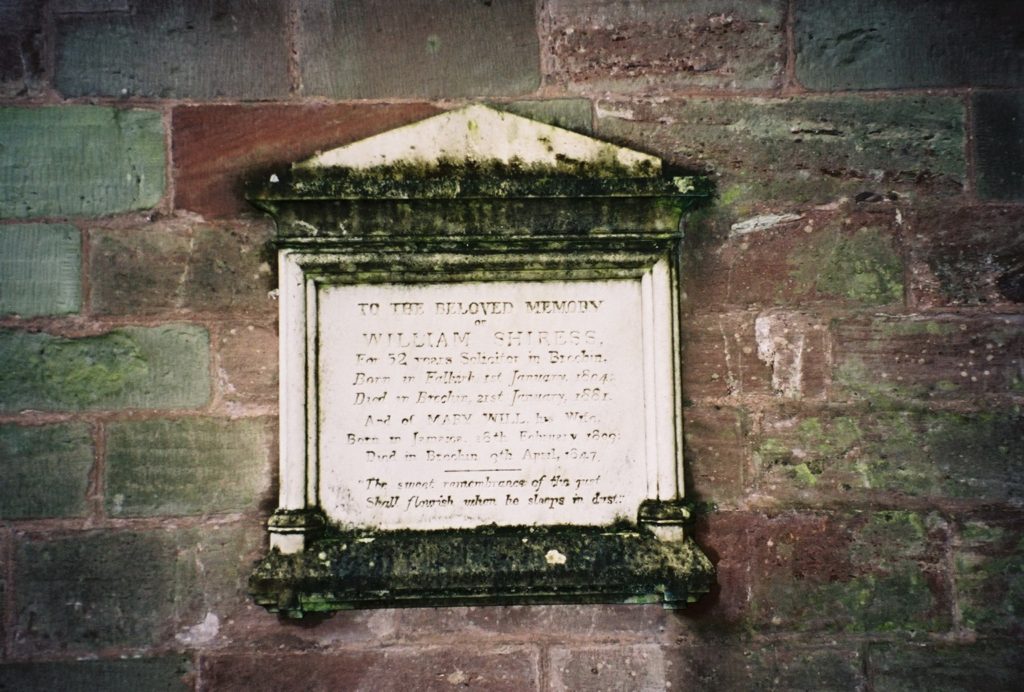 TO THE BELOVED MEMORY
OF
WILLIAM SHIRESS,
For 52 years Solicitor in Brechin,
Born in Falkirk, 1st January, 1804;
Died in Brechin, 21st January, 1881.
And of MARY WILL, his Wife,
Born in Jamaica, 18th February 1809;
Died in Brechin 9th April, 1847.
"The sweet remembrance of the just
Shall flourish when he sleeps in dust."